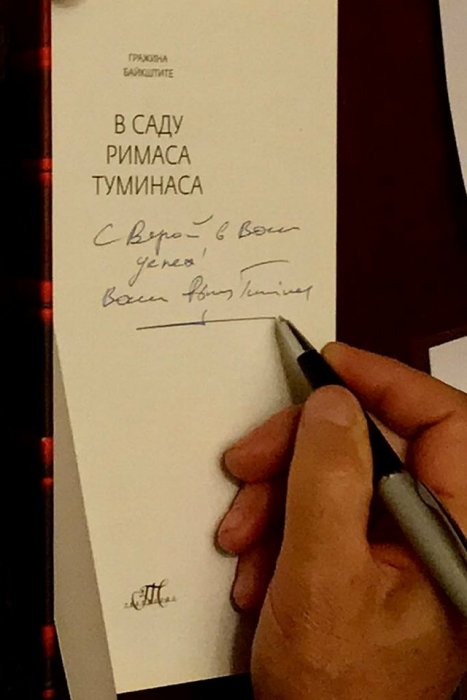 ГРАЖИНА
БАЙКШТИТЕ
В САДУ
РИМАСА
ТУМИНАСА
С Верой в Ваш
успех!
Ваш Римас Туминас